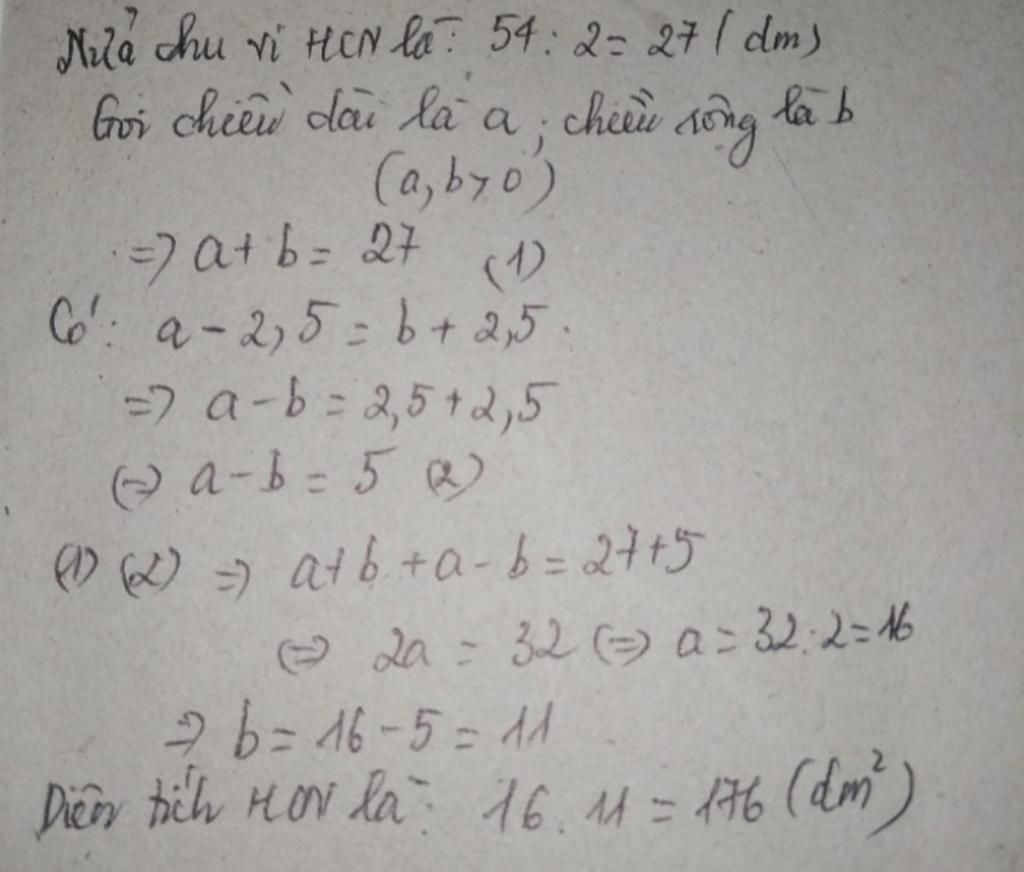 Nửa chu vi HCN là: 54 : 2 = 27 (dm)
Gọi chiều dài là a, chiều rộng là b
(a, b > 0)
=> a + b = 27 (1)
Có: a - 2,5 = b + 2,5.
=> a - b = 2,5 + 2,5
(=) a - b = 5 (2)
(1) (2) => a + b + a - b = 27 + 5
(=) 2a = 32 (=) a = 32 : 2 = 16
=> b = 16 - 5 = 11
Diện tích HCN là: 16 . 11 = 176 (dm²)